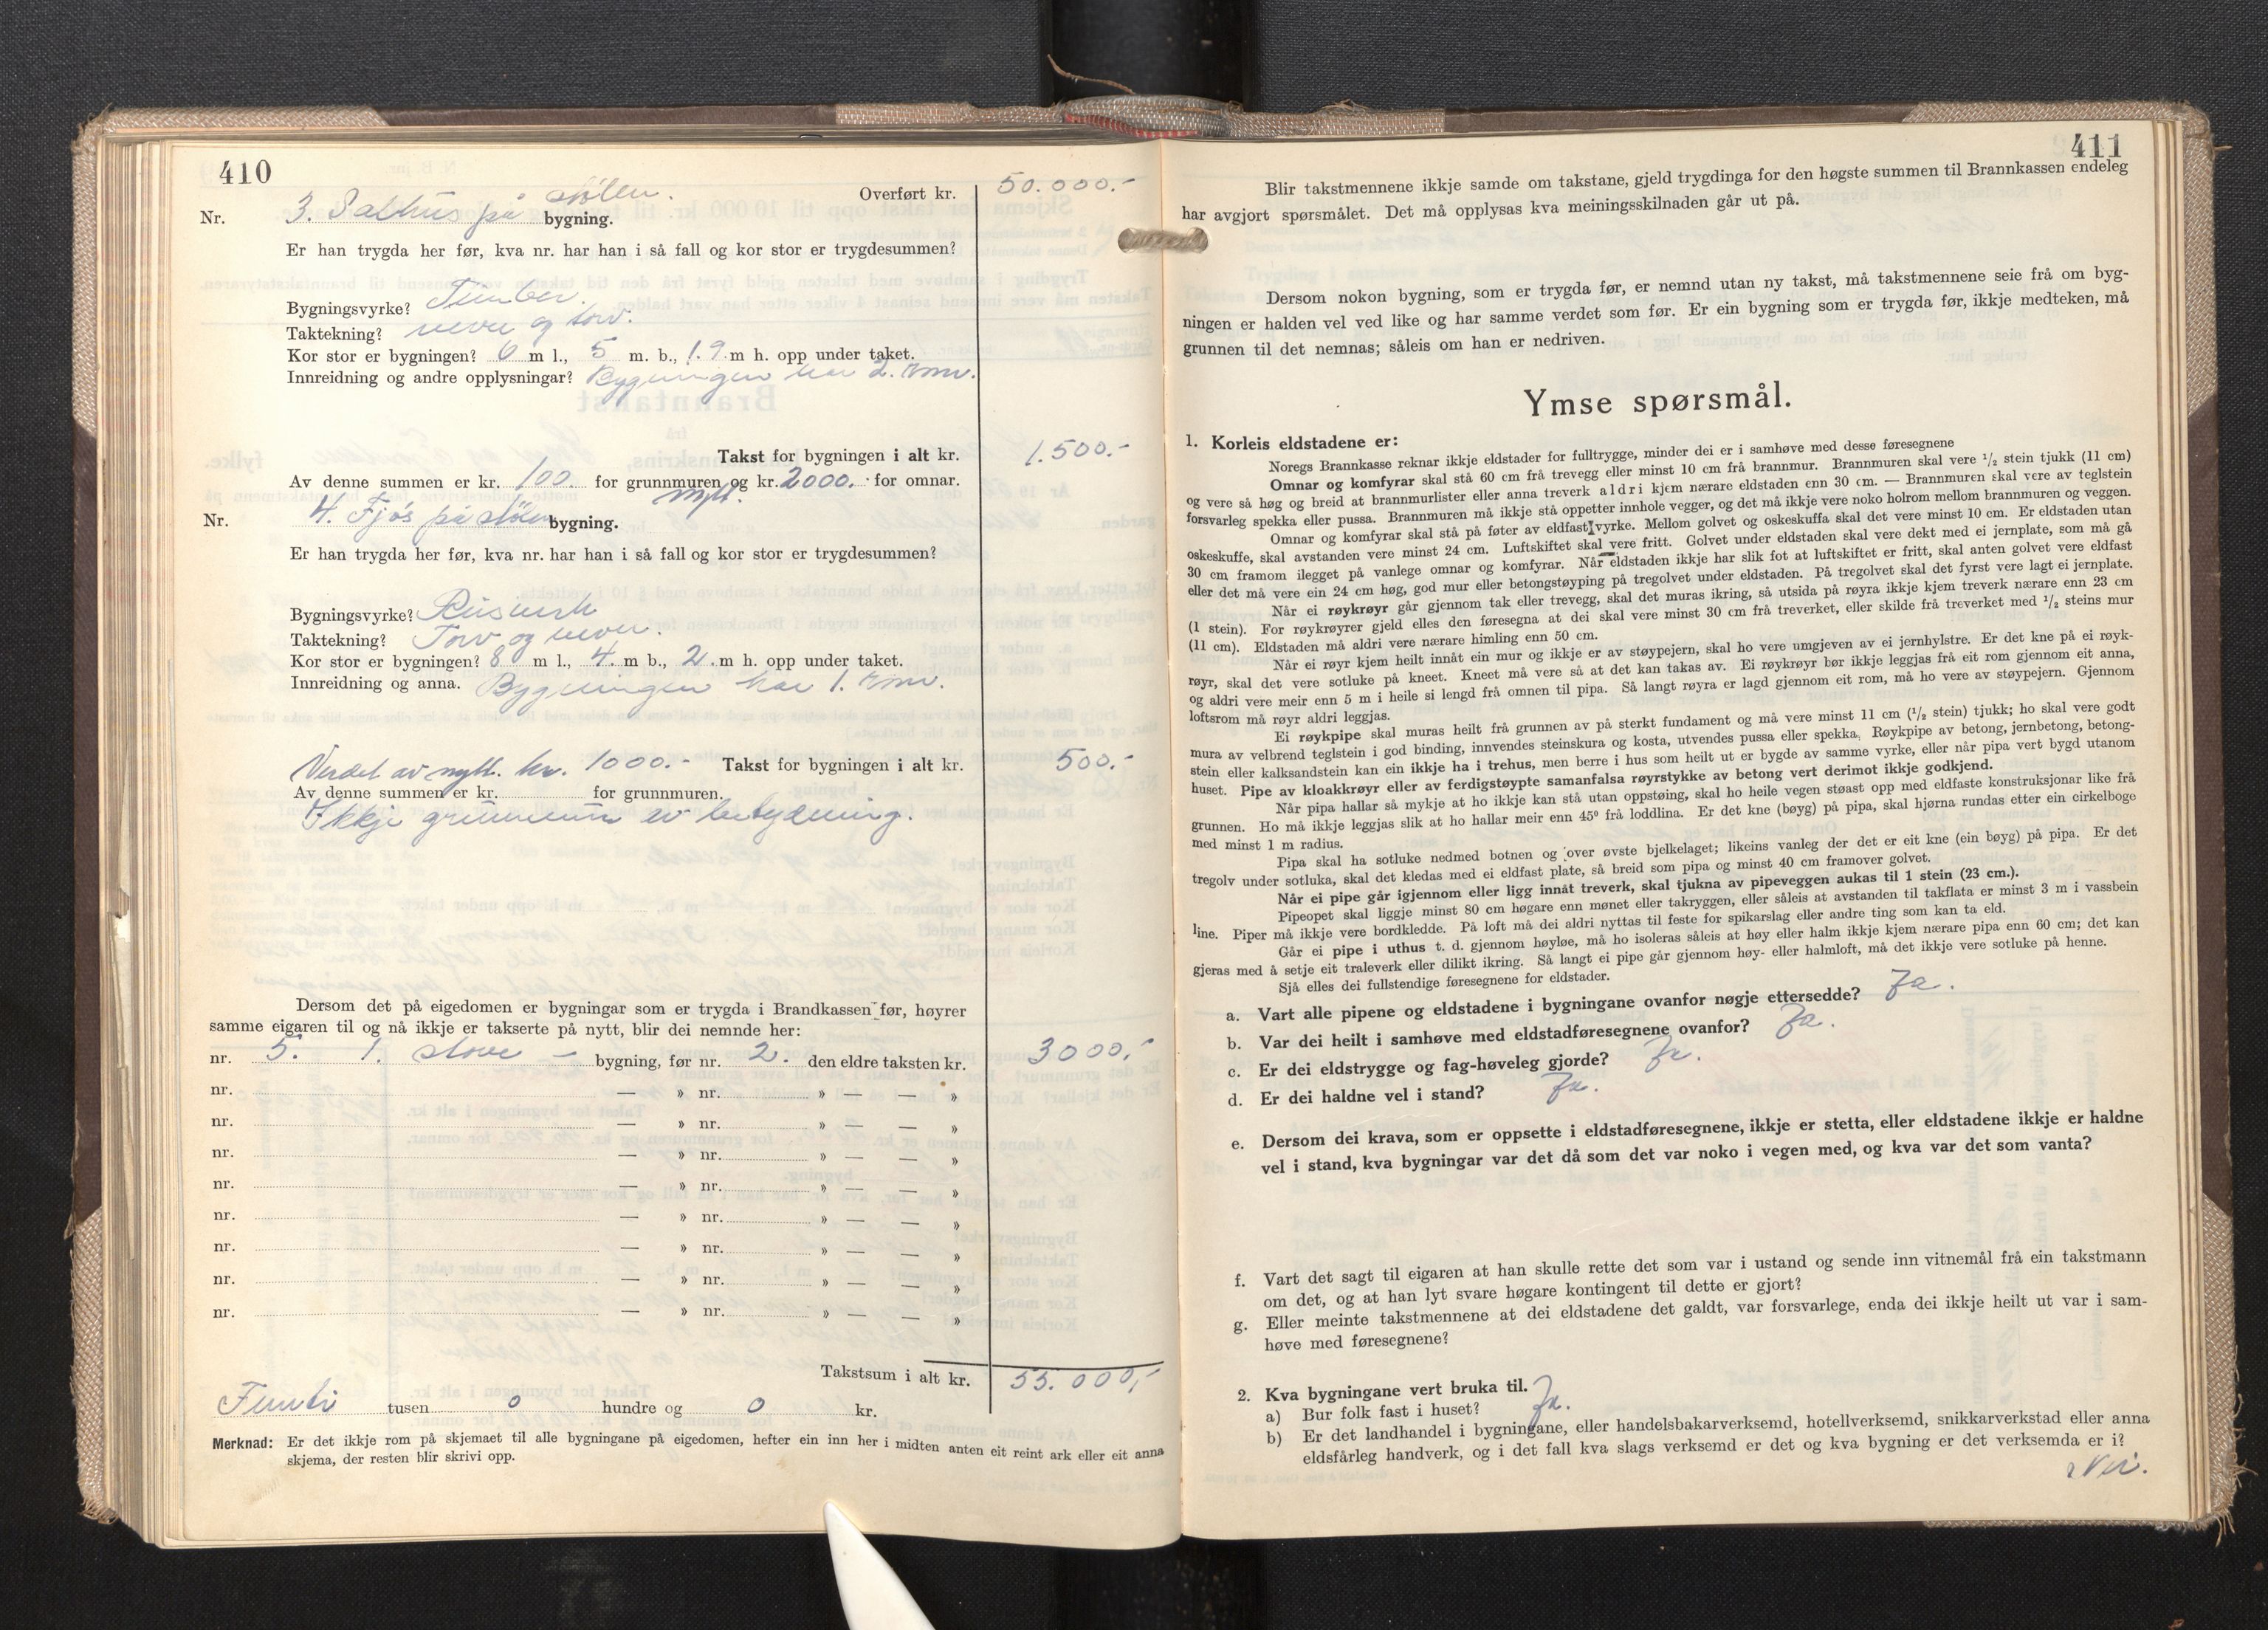 410
Overført kr. 50.000.-
Nr. 3. Salhus på stölen. bygning.
Er han trygda her før, kva nr. har han i så fall og kor stor er trygdesummen?
Bygningsvyrke? Timber.
Taktekning? never og torv.
Kor stor er bygningen? 6 m l., 5 m. b., 1.9 m h. opp under taket.
Innreidning og andre opplysningar? Bygningen har 2. rom.
Takst for bygningen i alt kr. 1.500.-
Av denne summen er kr. 100 for grunnmuren og kr. 2000. for omnar.
nytt.
Nr. 4. Fjös på stölen bygning.
Er han trygda her før, kva nr. har han i så fall og kor stor er trygdesummen?
Bygningsvyrke? Risverk
Taktekning? Torv og never.
Kor stor er bygningen? 8 m l., 4. m b., 2. m h. opp under taket.
Innreidning og anna. Bygningen har 1. rom.
Verdet av nytt. kr. 1000.- Takst for bygningen i alt kr. 500.-
Av denne summen er kr. for grunnmuren.
Ikkje grunnmur av betydning.
Dersom det på eigedomen er bygningar som er trygda i Brandkassen før, høyrer
samme eigaren til og nå ikkje er takserte på nytt, blir dei nemnde her:
nr. 5. 1. stove - bygning, før nr. 2. den eldre taksten kr. 3000.-
nr. — » nr. » — — »
nr. — » nr. » — — »
nr. — » nr. » — — »
nr. — » nr. » — — »
nr. — » nr. » — — »
nr. — » nr. » — — »
nr. — » nr. » — — »
nr. — » nr. » — — »
Takstsum i alt kr. 55.000,-
Femti tusen 0 hundre og 0 kr.
Merknad: Er det ikkje rom på skjemaet til alle bygningane på eigedomen, hefter ein inn her i midten anten eit reint ark eller eit anna
skjema, der resten blir skrivi opp.
411
Blir takstmennene ikkje samde om takstane, gjeld trygdinga for den høgste summen til Brannkassen endeleg
har avgjort spørsmålet. Det må opplysas kva meiningsskilnaden går ut på.
Dersom nokon bygning, som er trygda før, er nemnd utan ny takst, må takstmennene seie frå om byg-
ningen er halden vel ved like og har samme verdet som før. Er ein bygning som er trygda før, ikkje medteken, må
grunnen til det nemnas; såleis om han er nedriven.
Ymse spørsmål.
1. Korleis eldstadene er:
Noregs Brannkasse reknar ikkje eldstader for fulltrygge, minder dei er i samhøve med desse føresegnene
Omnar og komfyrar skal stå 60 cm frå trevegg eller minst 10 cm frå brannmur. Brannmuren skal vere 1/2 stein tjukk (11 cm)
og vere så høg og breid at brannmurlister eller anna treverk aldri kjem nærare eldstaden enn 30 cm. — Brannmuren skal vere av teglstein
forsvarleg spekka eller pussa. Brannmuren må ikkje stå oppetter innhole vegger, og det må ikkje vere noko holrom mellom brannmuren og veggen.
Omnar og komfyrar skal stå på føter av eldfast vyrke. Mellom golvet og oskeskuffa skal det vere minst 10 cm. Er eldstaden utan
oskeskuffe, skal avstanden vere minst 24 cm. Luftskiftet skal vere fritt. Golvet under eldstaden skal vere dekt med ei jernplate, som må gå
30 cm framom ilegget på vanlege omnar og komfyrar. Når eldstaden ikkje har slik fot at luftskiftet er fritt, skal anten golvet vere eldfast
eller det må vere ein 24 cm høg, god mur eller betongstøyping på tregolvet under eldstaden. På tregolvet skal det fyrst vere lagt ei jernplate.
Når ei røykrøyr går gjennom tak eller trevegg, skal det muras ikring, så utsida på røyra ikkje kjem treverk nærare enn 23 cm
(1 stein). For røykrøyrer gjeld elles den føresegna at dei skal vere minst 30 cm frå treverket, eller skilde frå treverket med 1/2 steins mur
(11 cm). Eldstaden må aldri vere nærare himling enn 50 cm.
Når ei røyr kjem heilt innåt ein mur og ikkje er av støypejern, skal ho vere umgjeven av ei jernhylstre. Er det kne på ei røyk-
røyr, skal det vere sotluke på kneet. Kneet må vere så at det kan takas av. Ei røykrøyr bør ikkje leggjas frå eit rom gjennom eit anna,
og aldri vere meir enn 5 m i heile si lengd frå omnen til pipa. Så langt røyra er lagd gjennom eit rom, må ho vere av støypejern. Gjennom
loftsrom må røyr aldri leggjas.
Ei røykpipe skal muras heilt frå grunnen av på sterkt fundament og må vere minst 11 cm (1/2 stein) tjukk; ho skal vere godt
mura av velbrend teglstein i god binding, innvendes steinskura og kosta, utvendes pussa eller spekka. Røykpipe av betong, jernbetong, betong-
stein eller kalksandstein kan ein ikkje ha i trehus, men berre i hus som heilt ut er bygde av samme vyrke, eller når pipa vert bygd utanom
huset. Pipe av kloakkrøyr eller av ferdigstøypte samanfalsa røyrstykke av betong vert derimot ikkje godkjend.
Når pipa hallar så mykje at ho ikkje kan stå utan oppstøing, skal ho heile vegen støast opp med eldfaste konstruksjonar like frå
grunnen. Ho må ikkje leggjas slik at ho hallar meir enn 45° frå loddlina. Er det kne (bøyg) på pipa, skal hjørna rundas etter ein cirkelboge
med minst 1 m radius.
Pipa skal ha sotluke nedmed botnen og over øvste bjelkelaget; likeins vanleg der det er eit kne (ein bøyg) på pipa. Er det
tregolv under sotluka, skal det kledas med ei eldfast plate, så breid som pipa og minst 40 cm framover golvet.
Når ei pipe går igjennom eller ligg innåt treverk, skal tjukna av pipeveggen aukas til 1 stein (23 cm.).
Pipeopet skal liggje minst 80 cm høgare enn mønet eller takryggen, eller såleis at avstanden til takflata er minst 3 m i vassbein
line. Piper må ikkje vere bordkledde. På loft må dei aldri nyttas til feste for spikarslag eller andre ting som kan ta eld.
Går ei pipe i uthus t. d. gjennom høyløe, må ho isoleras såleis at høy eller halm ikkje kjem nærare pipa enn 60 cm; det kan
gjeras med å setje eit traleverk eller dilikt ikring. Så langt ei pipe går gjennom høy- eller halmloft, må det ikkje vere sotluke på henne.
Sjå elles dei fullstendige føresegnene for eldstader.
a. Vart alle pipene og eldstadene i bygningane ovanfor nøgje ettersedde? Ja.
b. Var dei heilt i samhøve med eldstadføresegnene ovanfor? Ja.
c. Er dei eldstrygge og fag-høveleg gjorde? Ja.
d. Er dei haldne vel i stand? Ja.
e. Dersom dei krava, som er oppsette i eldstadføresegnene, ikkje er stetta, eller eldstadene ikkje er haldne
vel i stand, kva bygningar var det då som det var noko i vegen med, og kva var det som vanta?
f. Vart det sagt til eigaren at han skulle rette det som var i ustand og sende inn vitnemål frå ein takstmann
om det, og at han lyt svare høgare kontingent til dette er gjort?
g. Eller meinte takstmennene at dei eldstadene det galdt, var forsvarlege, enda dei ikkje heilt ut var i sam-
høve med føresegnene?
2. Kva bygningane vert bruka til.
a) Bur folk fast i huset? Ja.
b) Er det landhandel i bygningane, eller handelsbakarverksemd, hotellverksemd, snikkarverkstad eller anna
eldsfårleg handverk, og i det fall kva slags verksemd er det og kva bygning er det verksemda er i?
Nei.